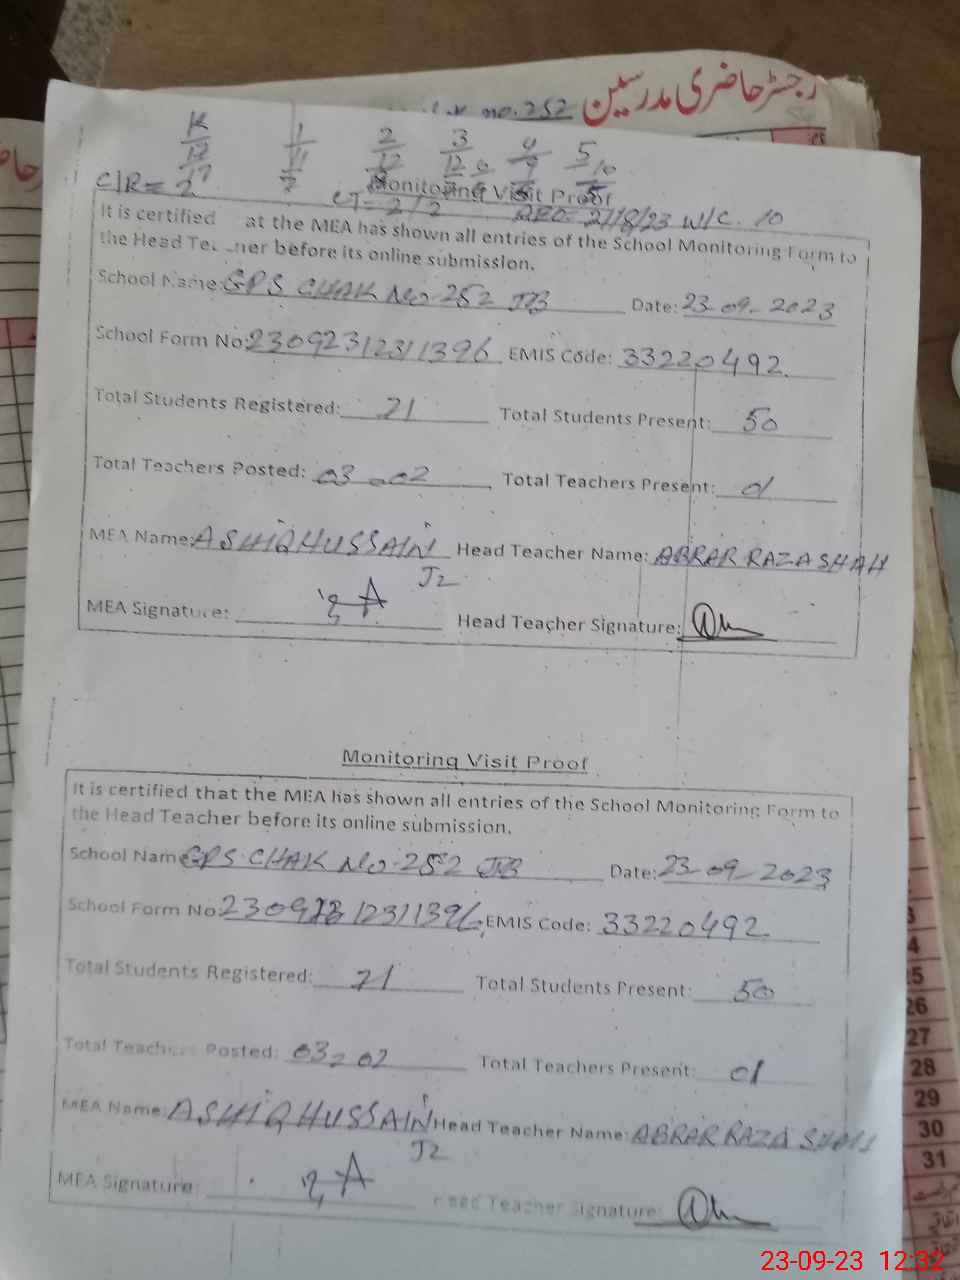 رجسٹر حاضری مدرسین
no. 252
K 1 2 3 4 5
12 11 12 12 9 10
17 7
C/R= 2
Monitoring Visit Proof
CT= 2/2 AEO= 21/8/23 W/C. 10
It is certified at the MEA has shown all entries of the School Monitoring Form to
the Head Te ner before its online submission.
School Name: GPS CHAK No. 252 JB Date: 23-09-2023
School Form No: 23092312311396 EMIS Code: 33220492
Total Students Registered: 71 Total Students Present: 50
Total Teachers Posted: 03-02 Total Teachers Present: 01
MEA Name: ASHIQ HUSSAIN Head Teacher Name: ABRAR RAZA SHAH
J2
MEA Signature: Head Teacher Signature:
Monitoring Visit Proof
It is certified that the MEA has shown all entries of the School Monitoring Form to
the Head Teacher before its online submission.
School Name GPS CHAK No. 252 JB Date: 23-09-2023
School Form No: 23092312311396 EMIS Code: 33220492
Total Students Registered: 71 Total Students Present: 50
Total Teachers Posted: 03-02 Total Teachers Present: 01
MEA Name: ASHIQ HUSSAIN Head Teacher Name: ABRAR RAZA SHAH
J2
MEA Signature: Head Teacher Signature:
26
27
28
29
30
31
23-09-23 12:32